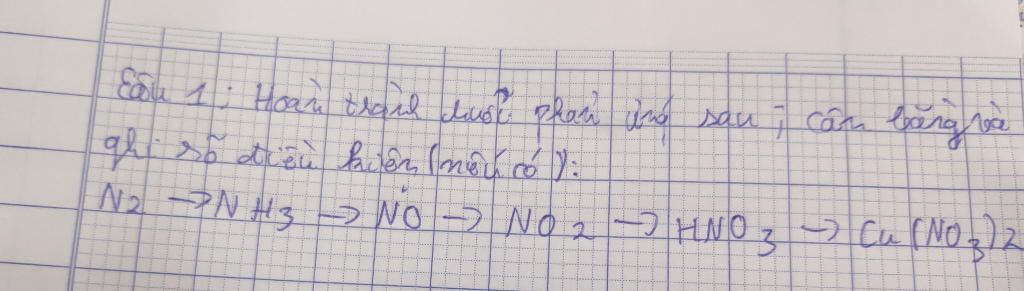 Câu 1: Hoàn thành chuỗi phản ứng sau, cân bằng và
ghi rõ điều kiện (nếu có):
N2 → NH3 → NO → NO2 → HNO3 → Cu(NO3)2